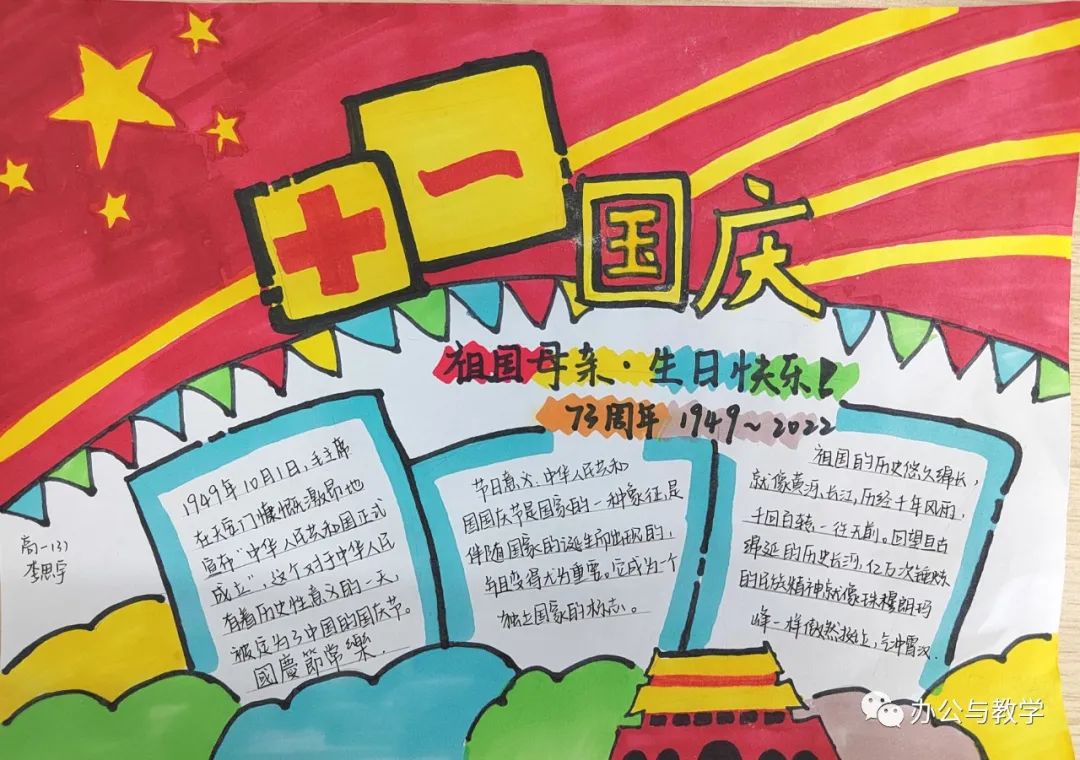 十一国庆
祖国母亲·生日快乐!
73周年 1949~2022
1949年10月1日,毛主席
在天安门慷慨激昂地
宣布“中华人民共和国正式
成立”,这个对于中华人民
有着历史性意义的一天,
被定为了中国的国庆节。
國慶節常樂.
节日意义:中华人民共和
国国庆节是国家的一种象征,是
伴随国家的诞生而出现的,
并且变得尤为重要。它成为一个
独立国家的标志。
祖国的历史悠久绵长,
就像黄河、长江,历经千年风雨,
千回百转,一往无前。回望亘古
绵延的历史长河,亿万次锤炼
的民族精神就像珠穆朗玛
峰一样傲然挺立,气冲霄汉.
高一(3)
李思宇
办公与教学